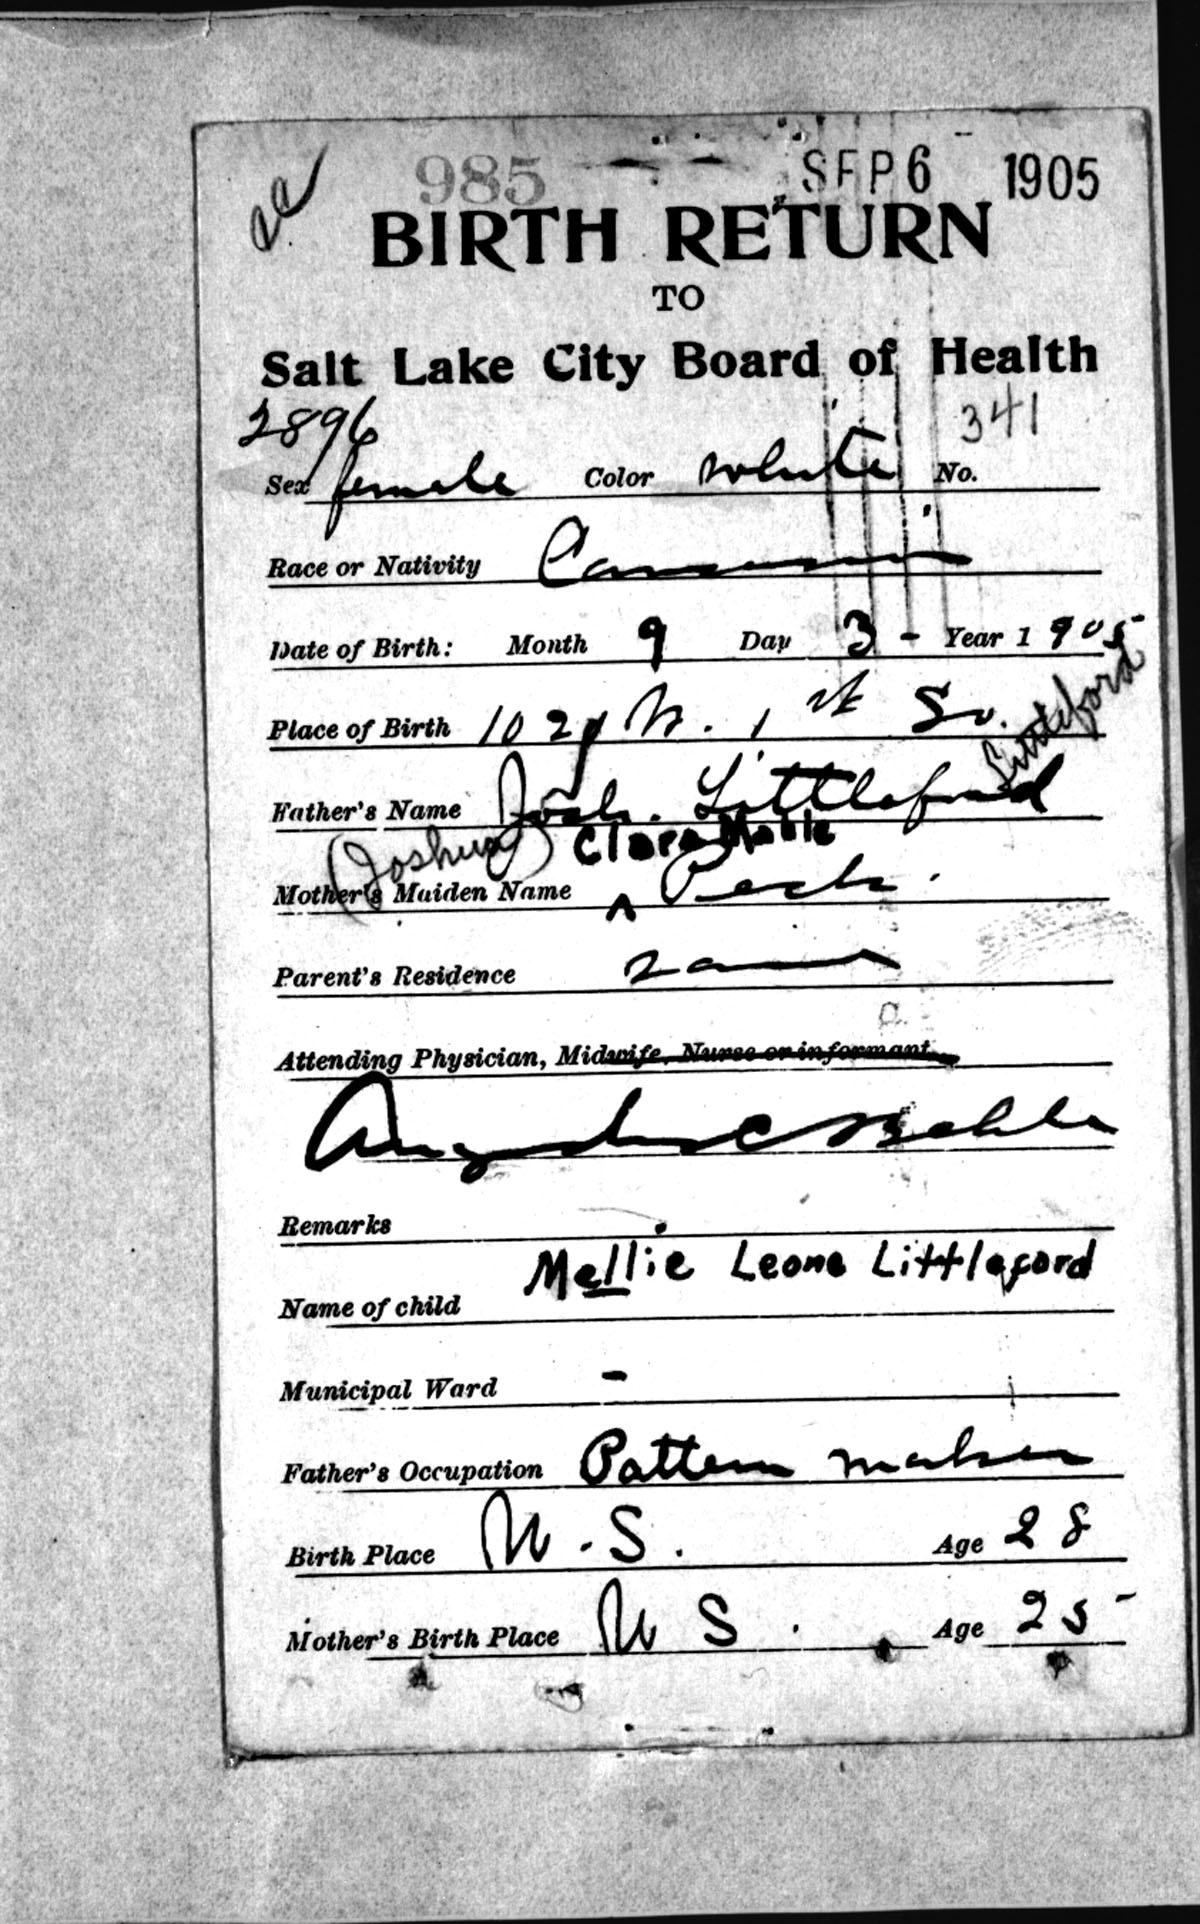 985 SEP 6 1905
BIRTH RETURN
TO
Salt Lake City Board of Health
2896 341
Sex female Color white No.
Race or Nativity
Date of Birth: Month 9 Day 3 - Year 1905
Place of Birth W. 1st So.
Littleford
Father's Name Josh. Littleford
(Joshua) Clara Mable
Mother's Maiden Name ^ Peck.
Parent's Residence same
Attending Physician, Midwife, Nurse or informant
Remarks
Mellie Leone Littleford
Name of child
Municipal Ward -
Father's Occupation Pattern maker
Birth Place U.S. Age 28
Mother's Birth Place U S. Age 25